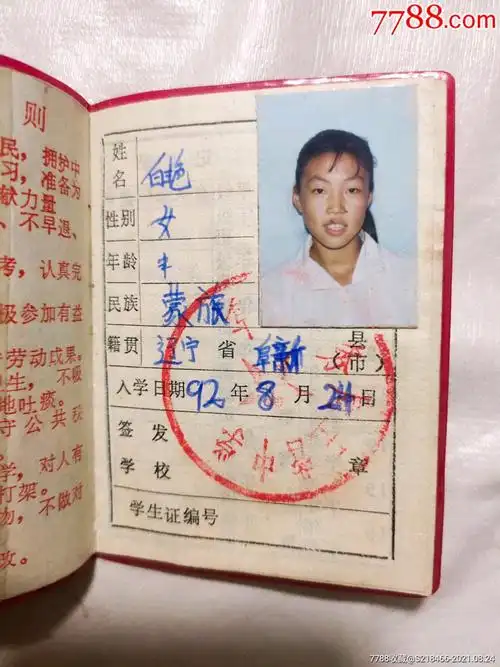 7788.com
则
民，拥护中
习，准备为
献力量
、不早退、
考，认真完
极参加有益
劳动成果。
卫生，不吸
地吐痰。
守公共秩
学，对人有
打架。
物，不做对
改。
姓名 白艳
性别 女
年龄
民族 蒙族
籍贯 辽宁 省 阜新 县（市）
入学日期 92 年 8 月 24 日
签发
学校 章
学生证编号
7788收藏@S218466-2021.08.24